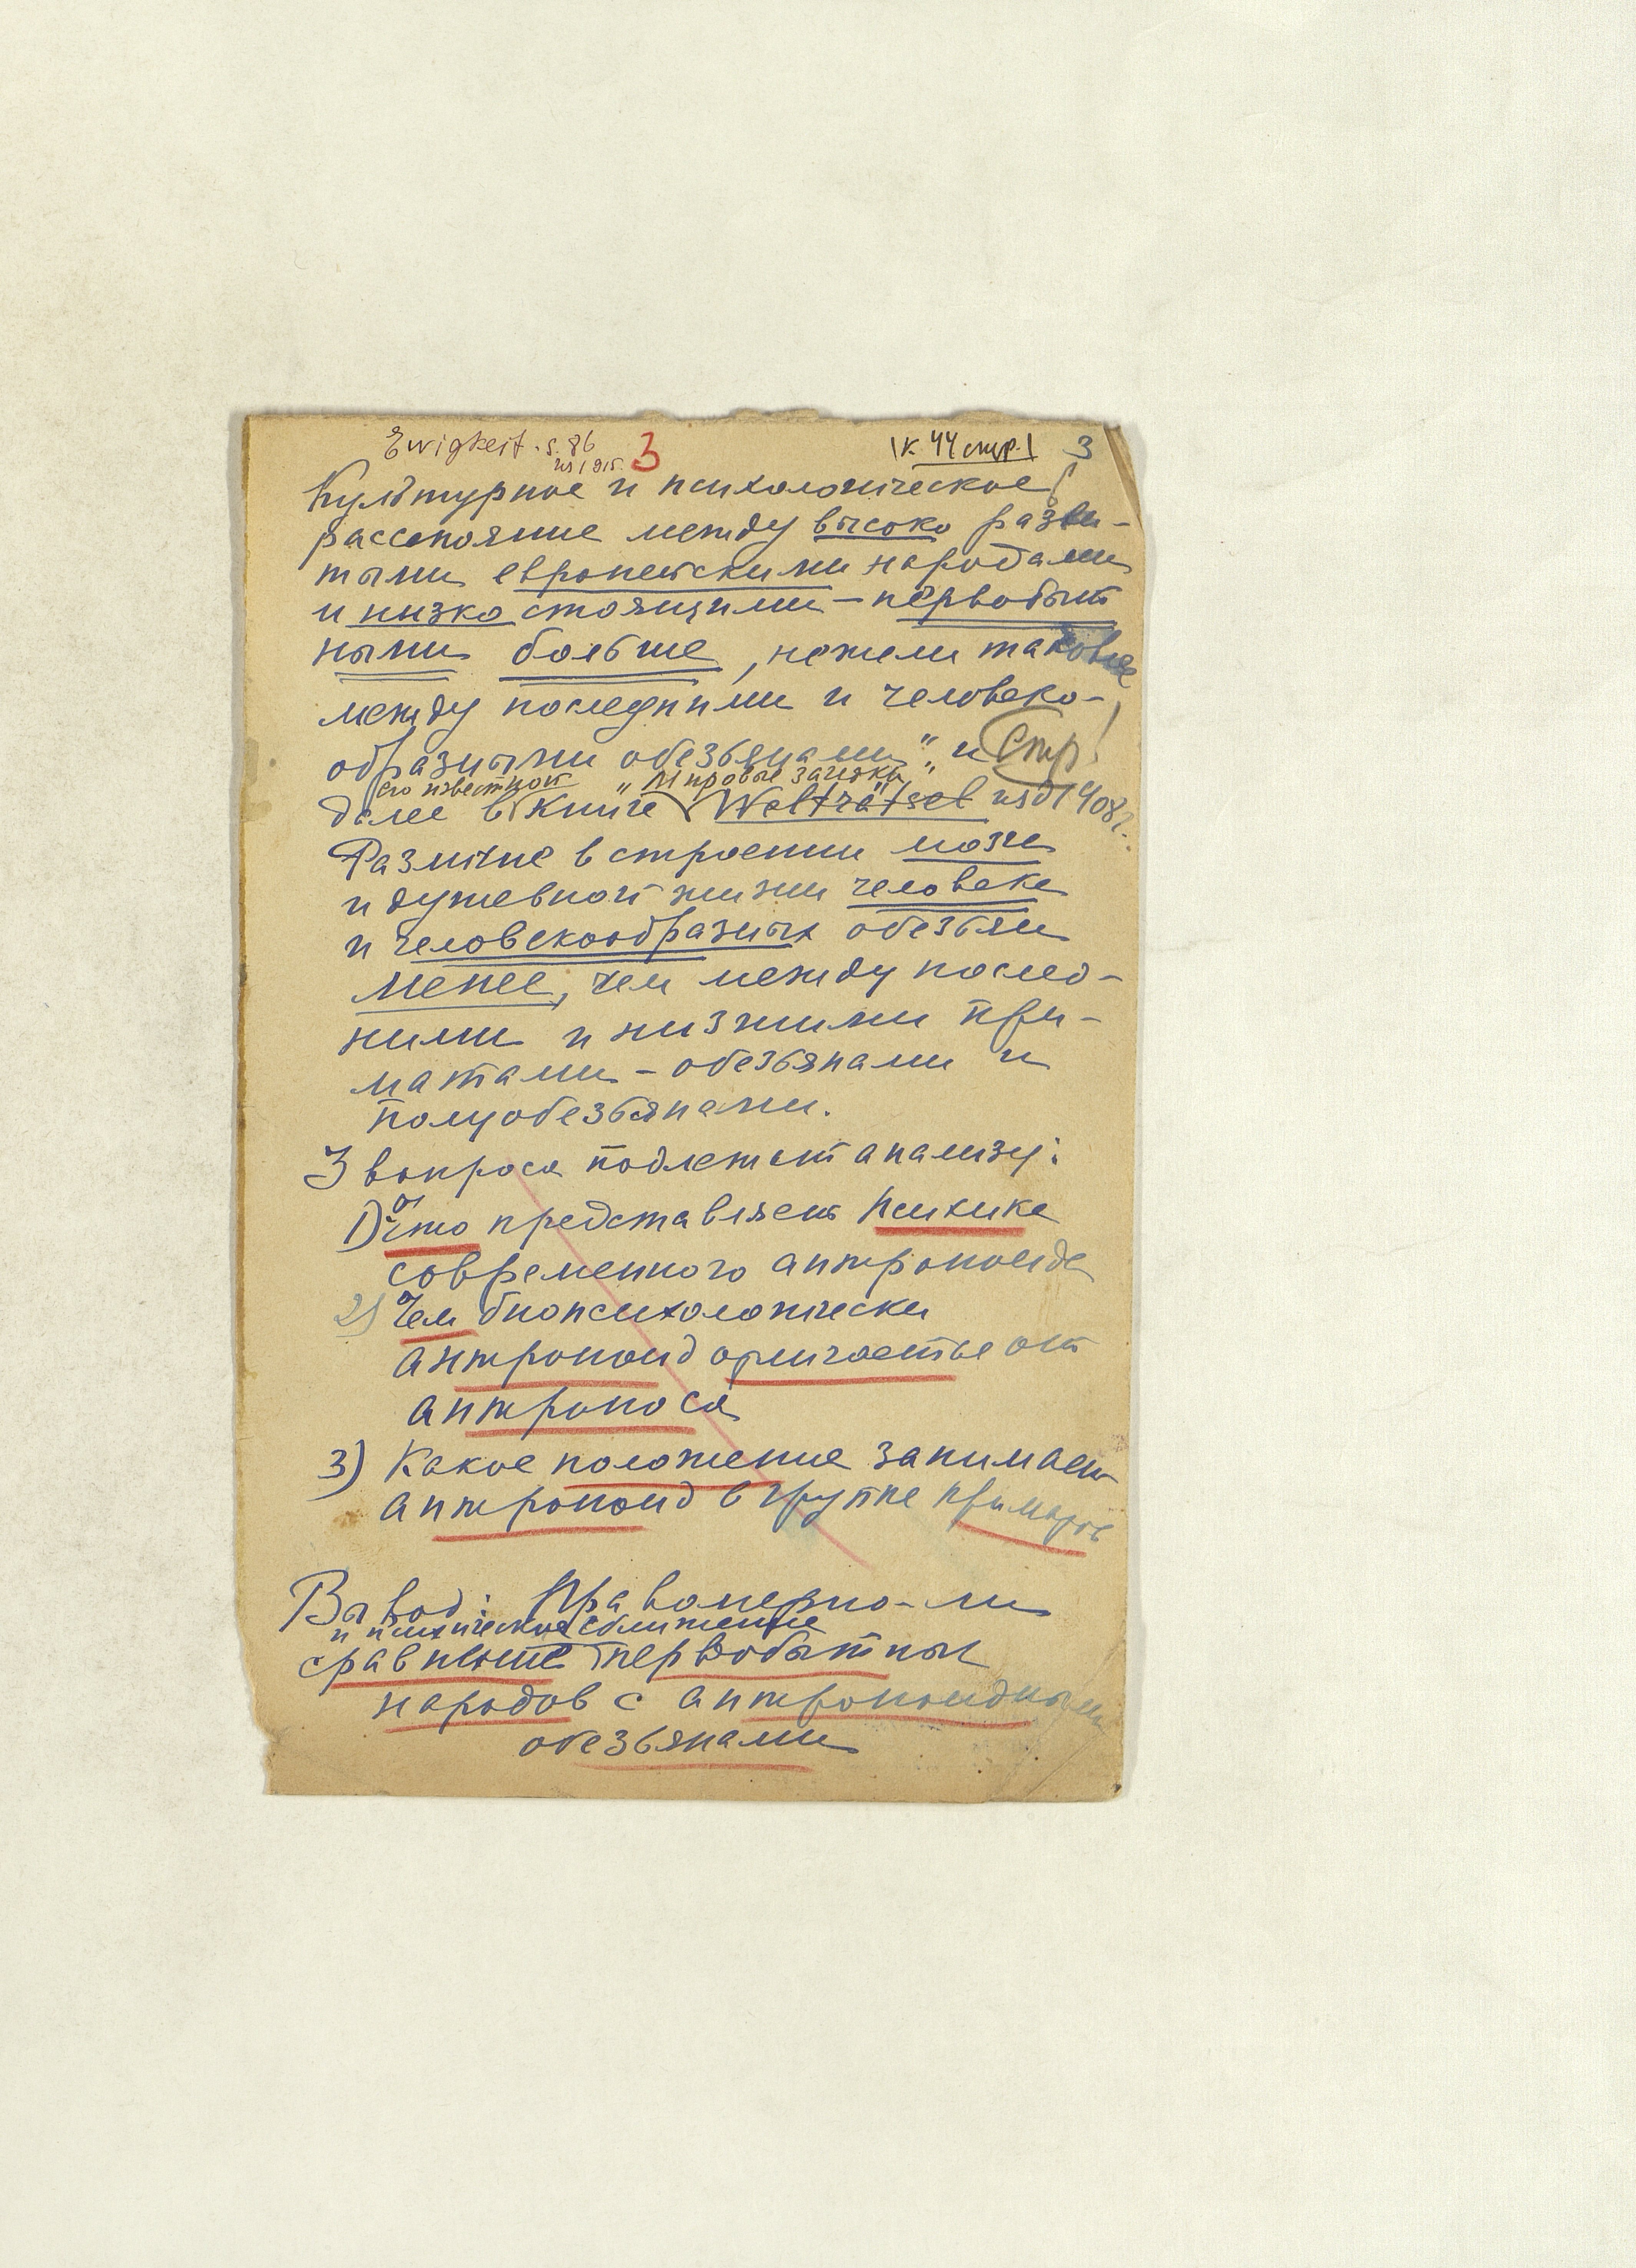 Ewigkeit. S. 86 3 \к 44 стр.\ 3
изд 1915.
Культурное и психологическое
расстояние между высоко разви-
тыми европейскими народами
и низко стоящими – первобыт
ными больше, нежели таковые
между последними и человеко-
образными обезьянами" и Стр!
его известной "Мировые загадки"
далее в книге Welträtsel изд 1908 г.
Различие в строении мозга
и душевной жизни человека
и человекообразных обезьян
менее, чем между послед-
ними и низшими при-
матами – обезьянами и
полуобезьянами.
3 вопроса подлежат анализу:
1) Что представляет психика
современного антропоида
2) Чем биопсихологически
антропоид отличается от
антропоса
3) Какое положение занимает
антропоид в группе приматов
Вывод: Правомерно-ли
и психическое сближение
сравнение первобытных
народов с антропоидными
обезьянами